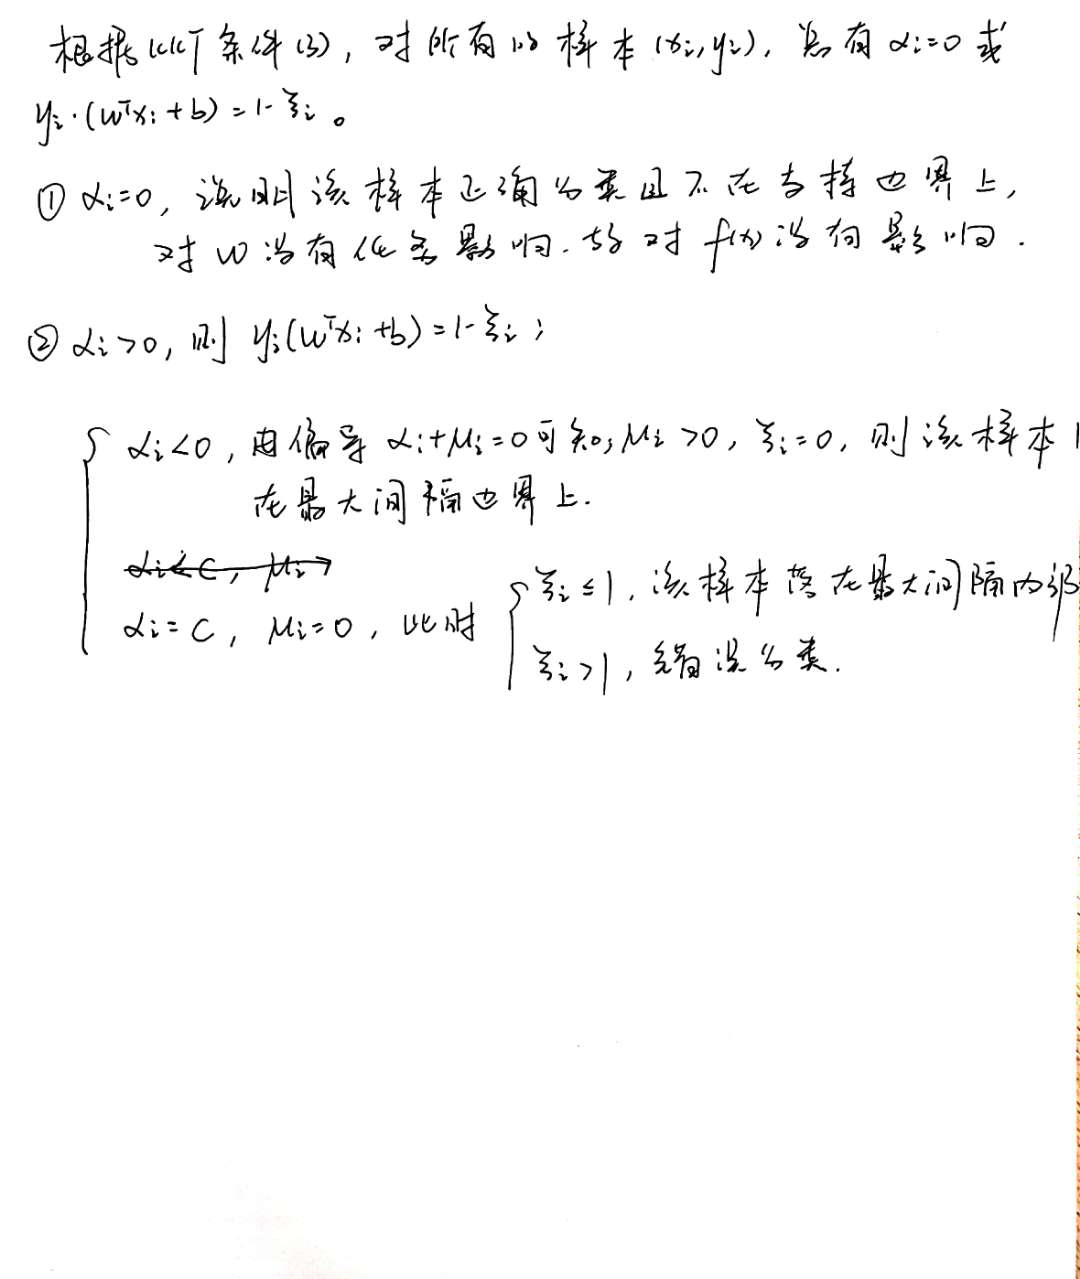 根据KKT条件(3)，对所有的样本(xi,yi)，总有αi=0或
yi·(wᵀxi+b)=1-ξi。
① αi=0，说明该样本正确分类且不在支持边界上，
对w没有任何影响.故对f(x)没有影响.
② αi>0，则 yi(wᵀxi+b)=1-ξi；
αi<0，由偏导αi+μi=0可知，μi>0，ξi=0，则该样本
在最大间隔边界上.
αi<C，μi>
αi=C，μi=0，此时
ξi≤1，该样本落在最大间隔内部
ξi>1，错误分类.